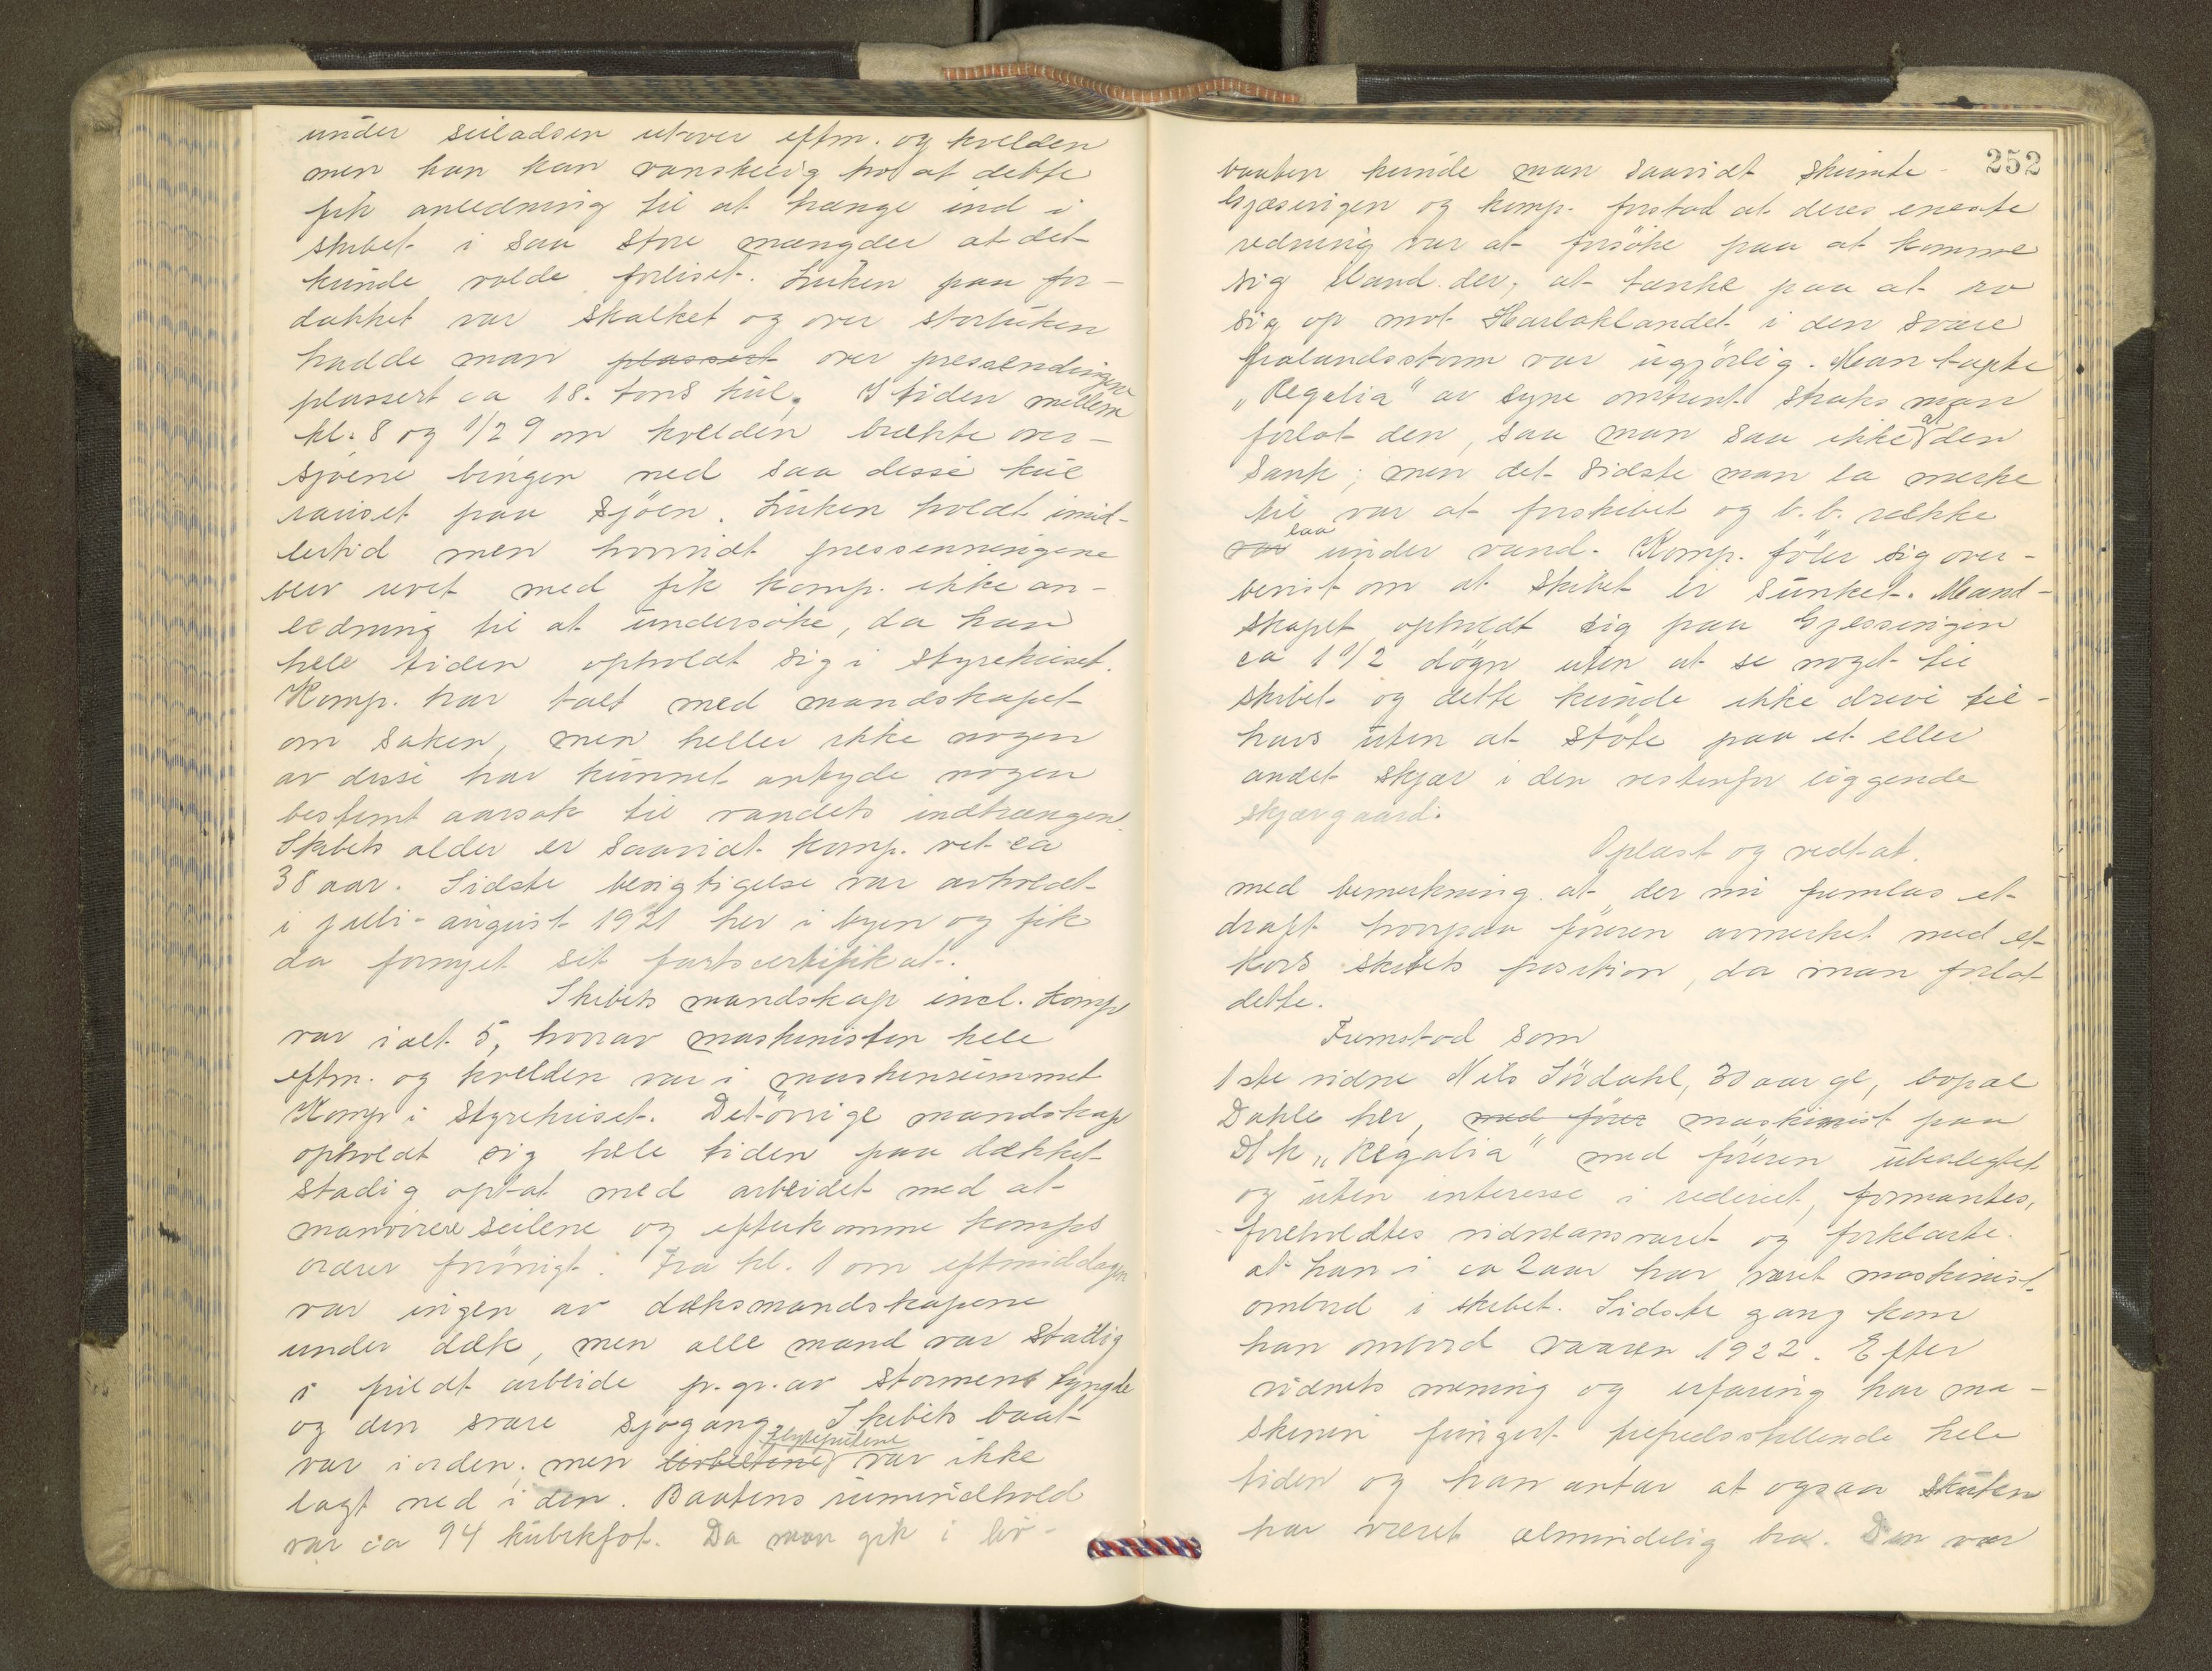 under seiladsen utover eftm. og kvelden
men han kan vanskelig tro at dette
fik anledning til at trænge ind i
skibet i saa store mængder at det
kunde volde forliset. Luken paa for-
dækket var skalket og over storluken
hadde man plassert over presendingene
plassert ca 18. tons kul. I tiden mellem
kl. 8 og 1/2 9 om kvelden brækte over-
sjøene bingen ned saa disse kul
rauset paa sjøen. Luken holdt imid-
lertid men hvorvidt pressenningene
blev revet med fik komp. ikke an-
ledning til at undersøke, da han
hele tiden opholdt sig i styrehuset.
Komp. har talt med mandskapet
om saken, men heller ikke nogen
av disse har kunnet antyde nogen
bestemt aarsak til vandets indtrængen.
Skibets alder er saavidt komp. vet ca
38 aar. Sidste besigtigelse var avholdt
i juli-august 1921 her i byen og fik
da fornyet sit fartscertifikat.
Skibets mandskap incl. komp
var ialt 5, hvorav maskinisten hele
eftm. og kvelden var i maskinrummet
Komp i styrehuset. Det övrige mandskap
opholdt sig hele tiden paa dækket
stadig optat med arbeidet med at
manövrere seilene og efterkomme komps
ordrer forövrigt. Fra kl. 1 om eftmiddagen
var ingen av dæksmandskapene
under dæk, men alle mand var stadig
i fuldt arbeide p. gr. av stormens tyngde
og den svære sjøgang. Skibets baat
var i orden, men livbeltene flyteputene var ikke
lagt ned i den. Baatens rumindhold
var ca 94 kubikfot. Da man gik i liv-
252
baaten kunde man saavidt skimte
Gjæsingen og komp. forstod at deres eneste
redning var at forsöke paa at komme
sig iland der, at tænke paa at ro
sig op mot Harbaklandet i den svære
fralandsstorm var ugjörlig. Man tapte
„Regalia" av syne omtrent straks man
forlot den, saa man saa ikke at den
sank; men det sidste man la merke
til var at forskibet og b.b. række
var laa under vand. Komp. föler sig over-
bevist om at skibet er sunket. Mand-
skapet opholdt sig paa Gjessingen
ca 1 1/2 dögn uten at se noget til
skibet og dette kunde ikke drive til-
havs uten at støte paa et eller
andet skjær i den vestenfor liggende
skjærgaard.
Oplæst og vedtat.
med bemerkning at der nu fremlas et
draft hvorpaa föreren avmerket med et
kors skibets position, da man forlot
dette.
Fremstod som
1ste vidne Nils Sördahl, 30 aar gl, bopæl
Dahle her, med förer maskinist paa
D/k „Regalia" med föreren ubeslegtet
og uten interesse i rederiet, formantes,
foreholdtes vidneansvaret og forklarte.
at han i ca 2 aar har været maskinist
ombord i skibet. Sidste gang kom
han ombord vaaren 1922. Efter
vidnets mening og erfaring har ma-
skinen fungert tilfredsstillende hele
tiden og han antar at ogsaa skuten
har været almindelig bra. Den var